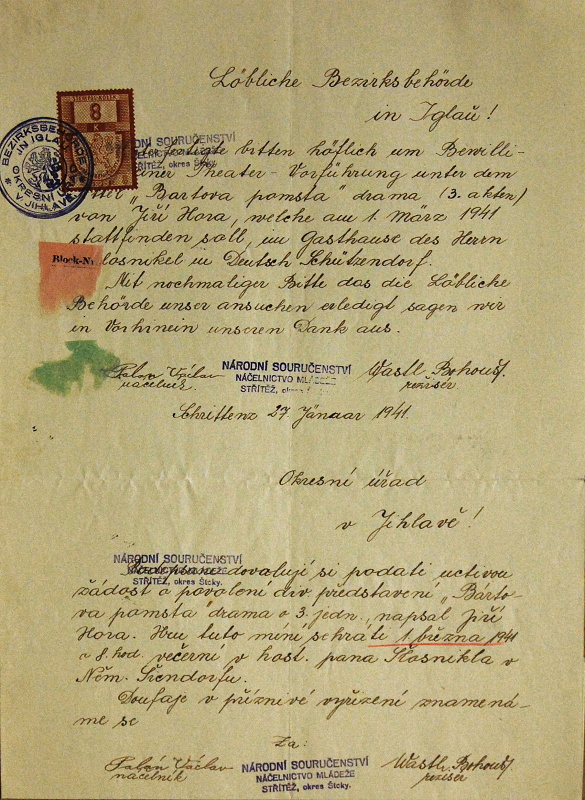 Löbliche Bezirksbehörde
in Iglau!
8
K
BEZIRKSBEHÖRDE
IN IGLAU
OKRESNÍ
V JIHLAVĚ
NÁRODNÍ SOURUČENSTVÍ
STŘÍTĚŽ, okres Štoky.
bitten höflich um Bewilli-
einer Theater-Vorführung unter dem
„Bartova pomsta" drama (3. akten)
von Jiří Hora, welche am 1. März 1941
stattfinden soll, im Gasthause des Herrn
Block-Nr.
losnikel in Deutsch Schützendorf.
Mit nochmaliger Bitte das die Löbliche
Behörde unser ansuchen erledigt sagen wir
in Vorhinein unseren Dank aus.
Václav
náčelník
NÁRODNÍ SOURUČENSTVÍ
NÁČELNICTVO MLÁDEŽE
STŘÍTĚŽ, okres
Wastl Bohouš
režisér
Schrittenz 27 Jänuar 1941.
Okresní úřad
v Jihlavě!
NÁRODNÍ SOURUČENSTVÍ
NÁČELNICTVO MLÁDEŽE
STŘÍTĚŽ, okres Štoky.
dovolují si podati uctivou
žádost o povolení div představení „Barto-
va pomsta" drama o 3. jedn., napsal Jiří
Hora. Hru tuto míní sehráti 1. března 1941
o 8. hod. večerní v host. pana Klosnikla v
Něm. Šicndorfu.
Doufaje v příznivé vyřízení znamená-
me se
Za:
Václav
náčelník
NÁRODNÍ SOURUČENSTVÍ
NÁČELNICTVO MLÁDEŽE
STŘÍTĚŽ, okres Štoky.
Wastl Bohouš
režisér